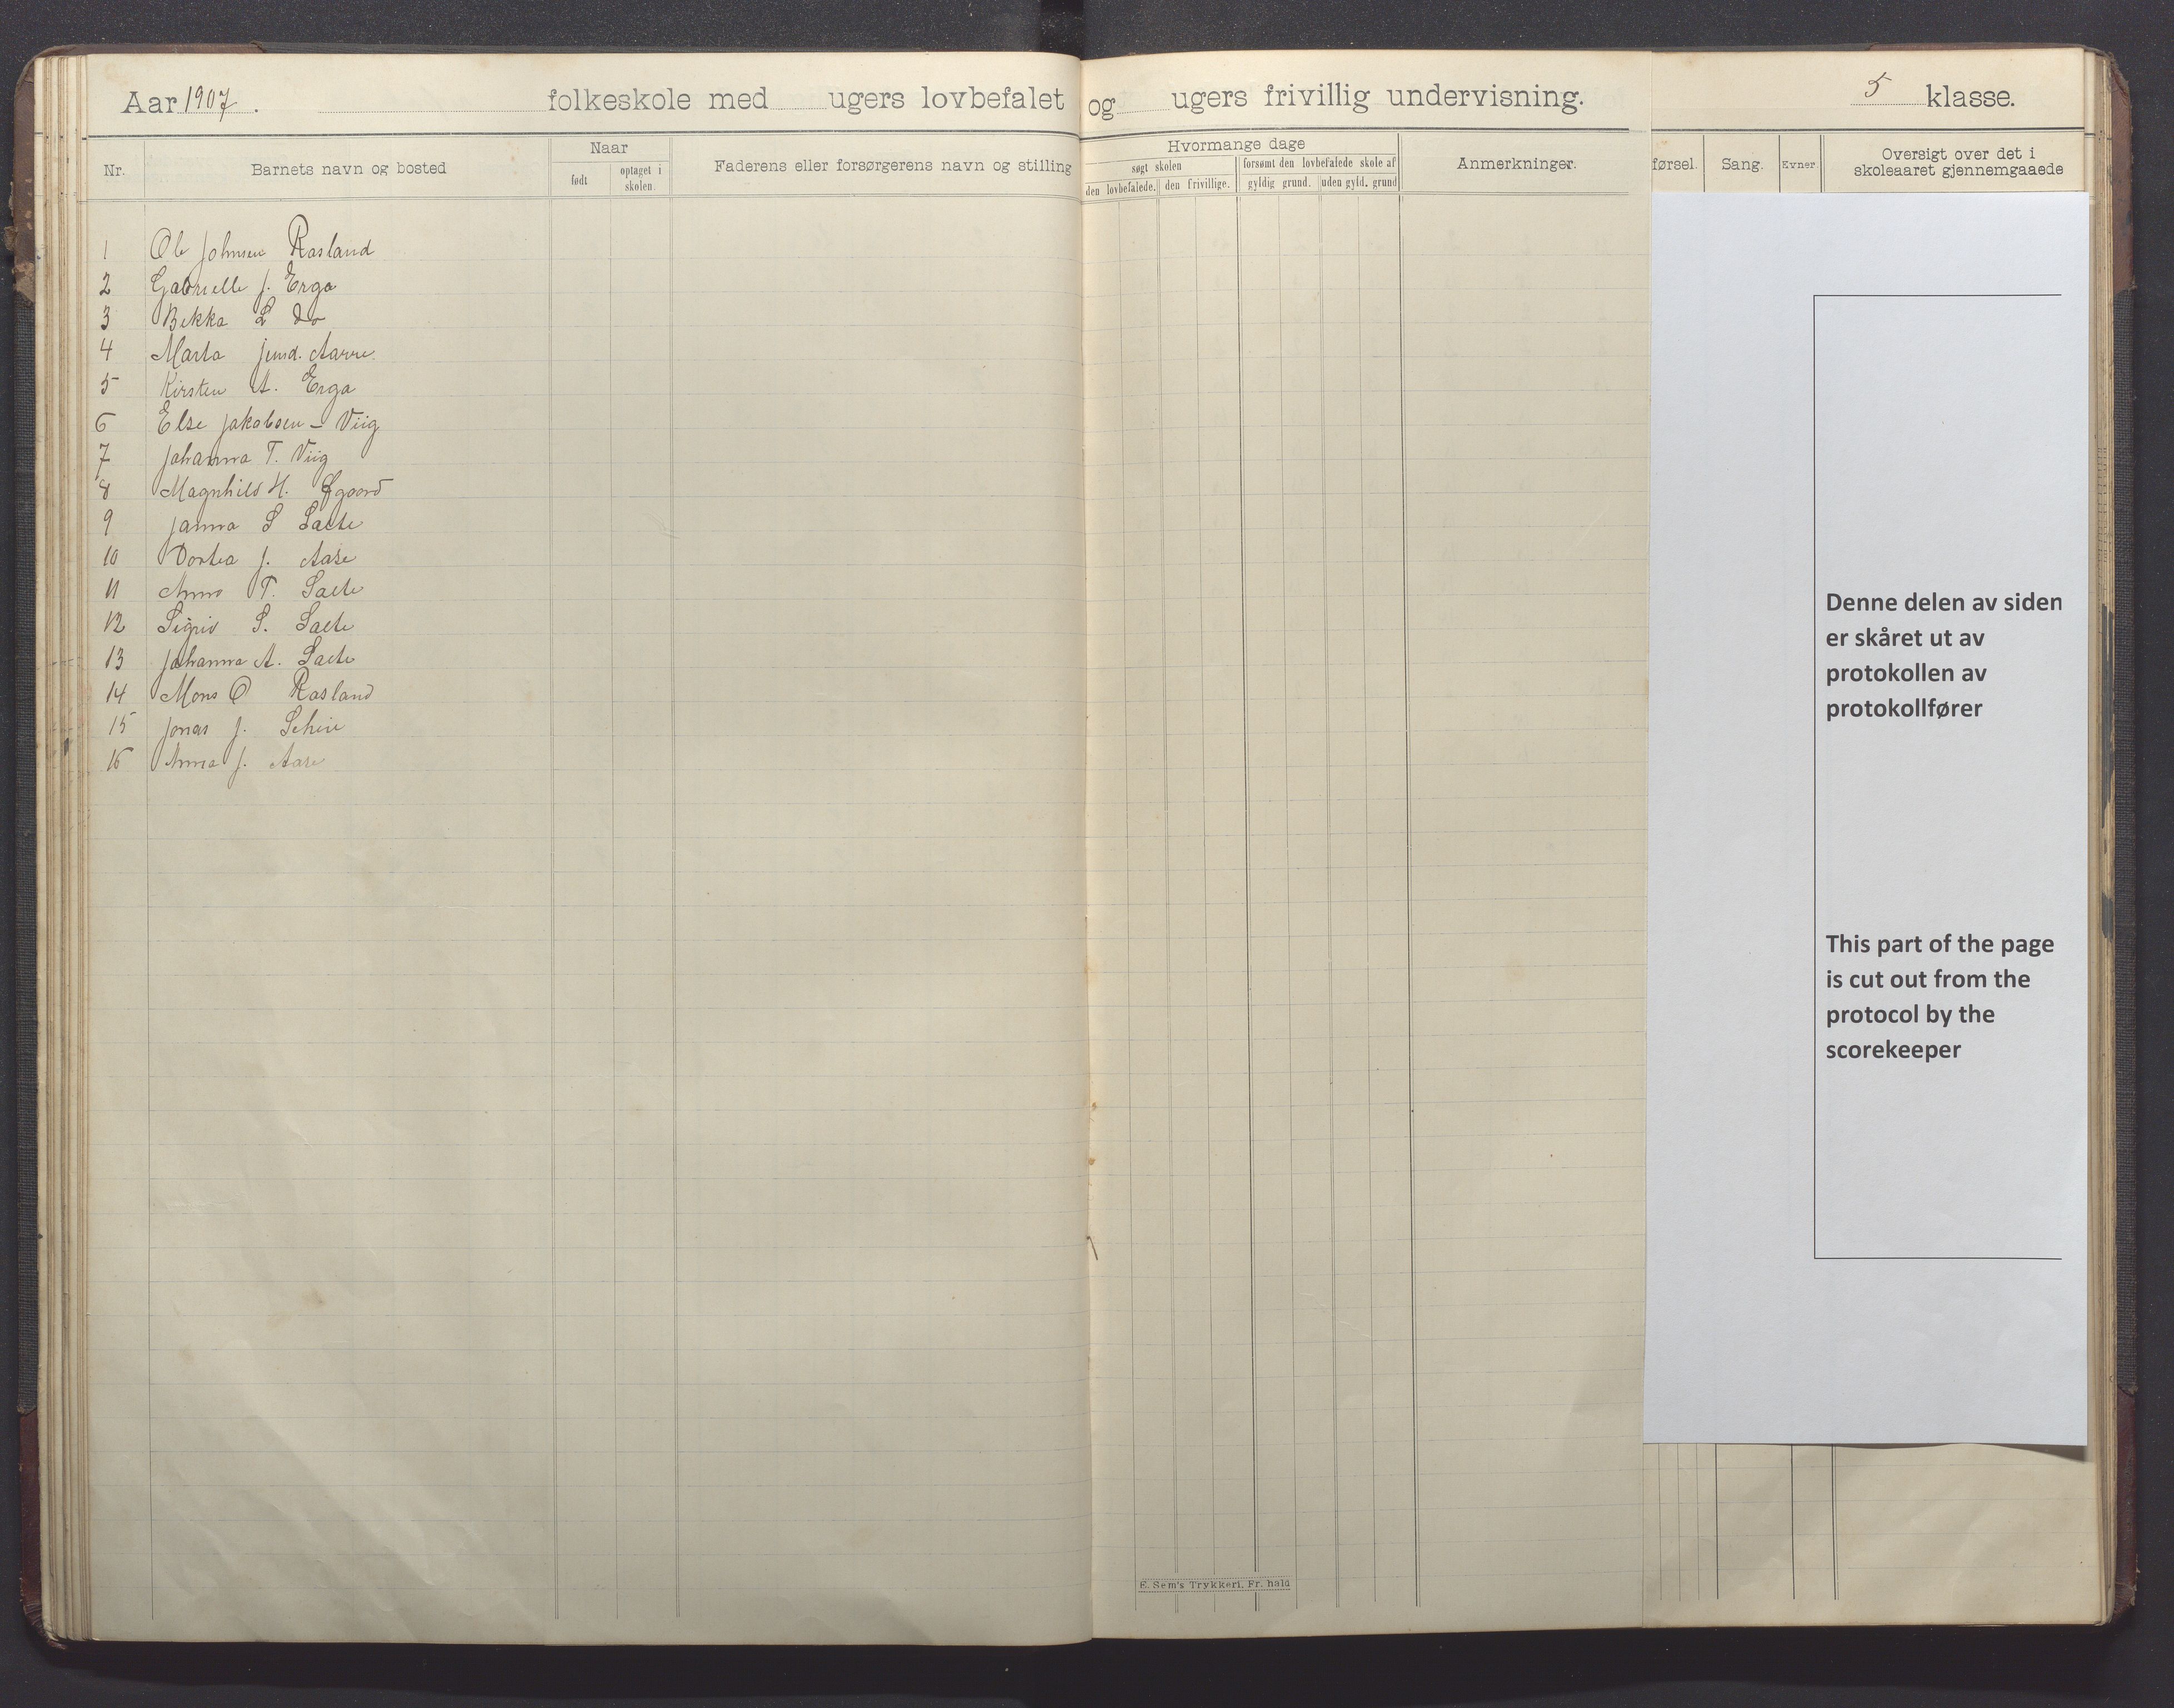 Aar 1907. folkeskole med ugers lovbefalet og ugers frivillig undervisning. 5 klasse.
Nr. Barnets navn og bosted
Naar
født
optaget i skolen.
Faderens eller forsørgerens navn og stilling
Hvormange dage
søgt skolen
forsømt den lovbefalede skole af
den lovbefalede. den frivillige. gyldig grund. uden gyld. grund
Anmerkninger.
førsel. Sang. Evner
Oversigt over det i
skoleaaret gjennemgaaede
1 Ole Johnsen Rasland
2 Gabrielle J. Erga
3 Bekka L do
4 Marta Aarre.
5 Kirsten A. Erga
6 Else Jakobsen - Viig
7 Johanna T. Viig
8 Magnhild H.
9 Janna S Salte
10 Dortea J. Aase
11 Anna T. Salte
12 Sigrid S. Salte
13 Johanna A. Salte
14 Mons O Rasland
15 Jonas J.
16 Anna J. Aase
Denne delen av siden
er skåret ut av
protokollen av
protokollfører
This part of the page
is cut out from the
protocol by the
scorekeeper
E. Sem's Trykkeri, Fr. hald